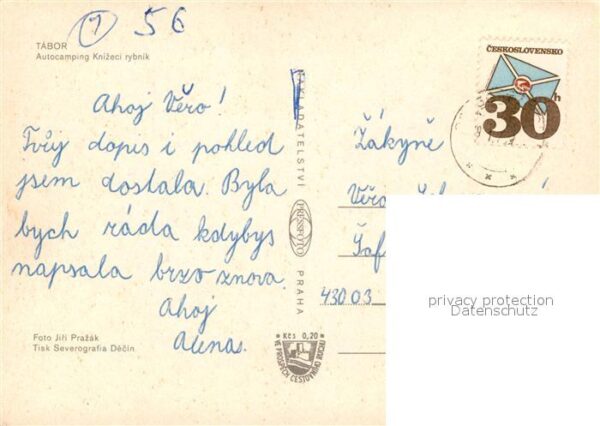 7 56
TÁBOR
Autocamping Knížecí rybník
Ahoj Věro!
Tvůj dopis i pohled
jsem dostala. Byla
bych ráda kdybys
napsala brzo znova.
Ahoj
Alena.
Foto Jiří Pražák
Tisk Severografia Děčín
NAKLADATELSTVÍ
PRESSFOTO
PRAHA
Kčs 0,20
VE PROSPĚCH CESTOVNÍHO RUCHU
ČESKOSLOVENSKO
30h
Žákyně
Věra
43003
privacy protection
Datenschutz